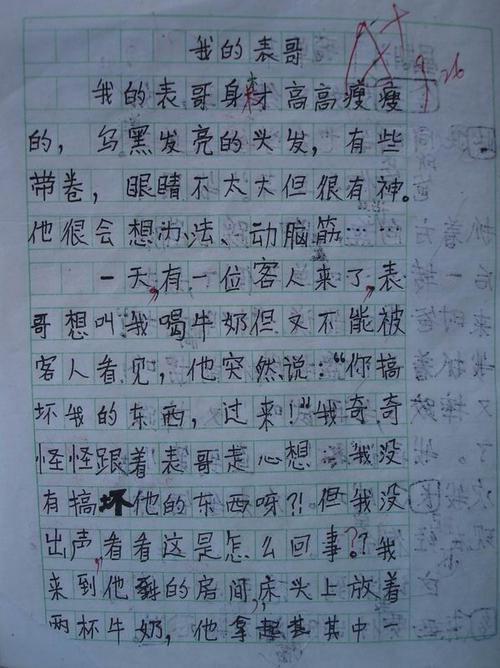 我的表哥
我的表哥身材高高瘦瘦
的，乌黑发亮的头发，有些
带卷，眼睛不太大但很有神。
他很会想办法、动脑筋……
一天，有一位客人来了，表
哥想叫我喝牛奶但又不能被
客人看见，他突然说：“你搞
坏我的东西，过来！”我奇奇
怪怪跟着表哥走心想：“我没
有搞坏他的东西呀?！但我没
出声，看看这是怎么回事？？我
来到他的房间，床头上放着
两杯牛奶，他拿起其中一